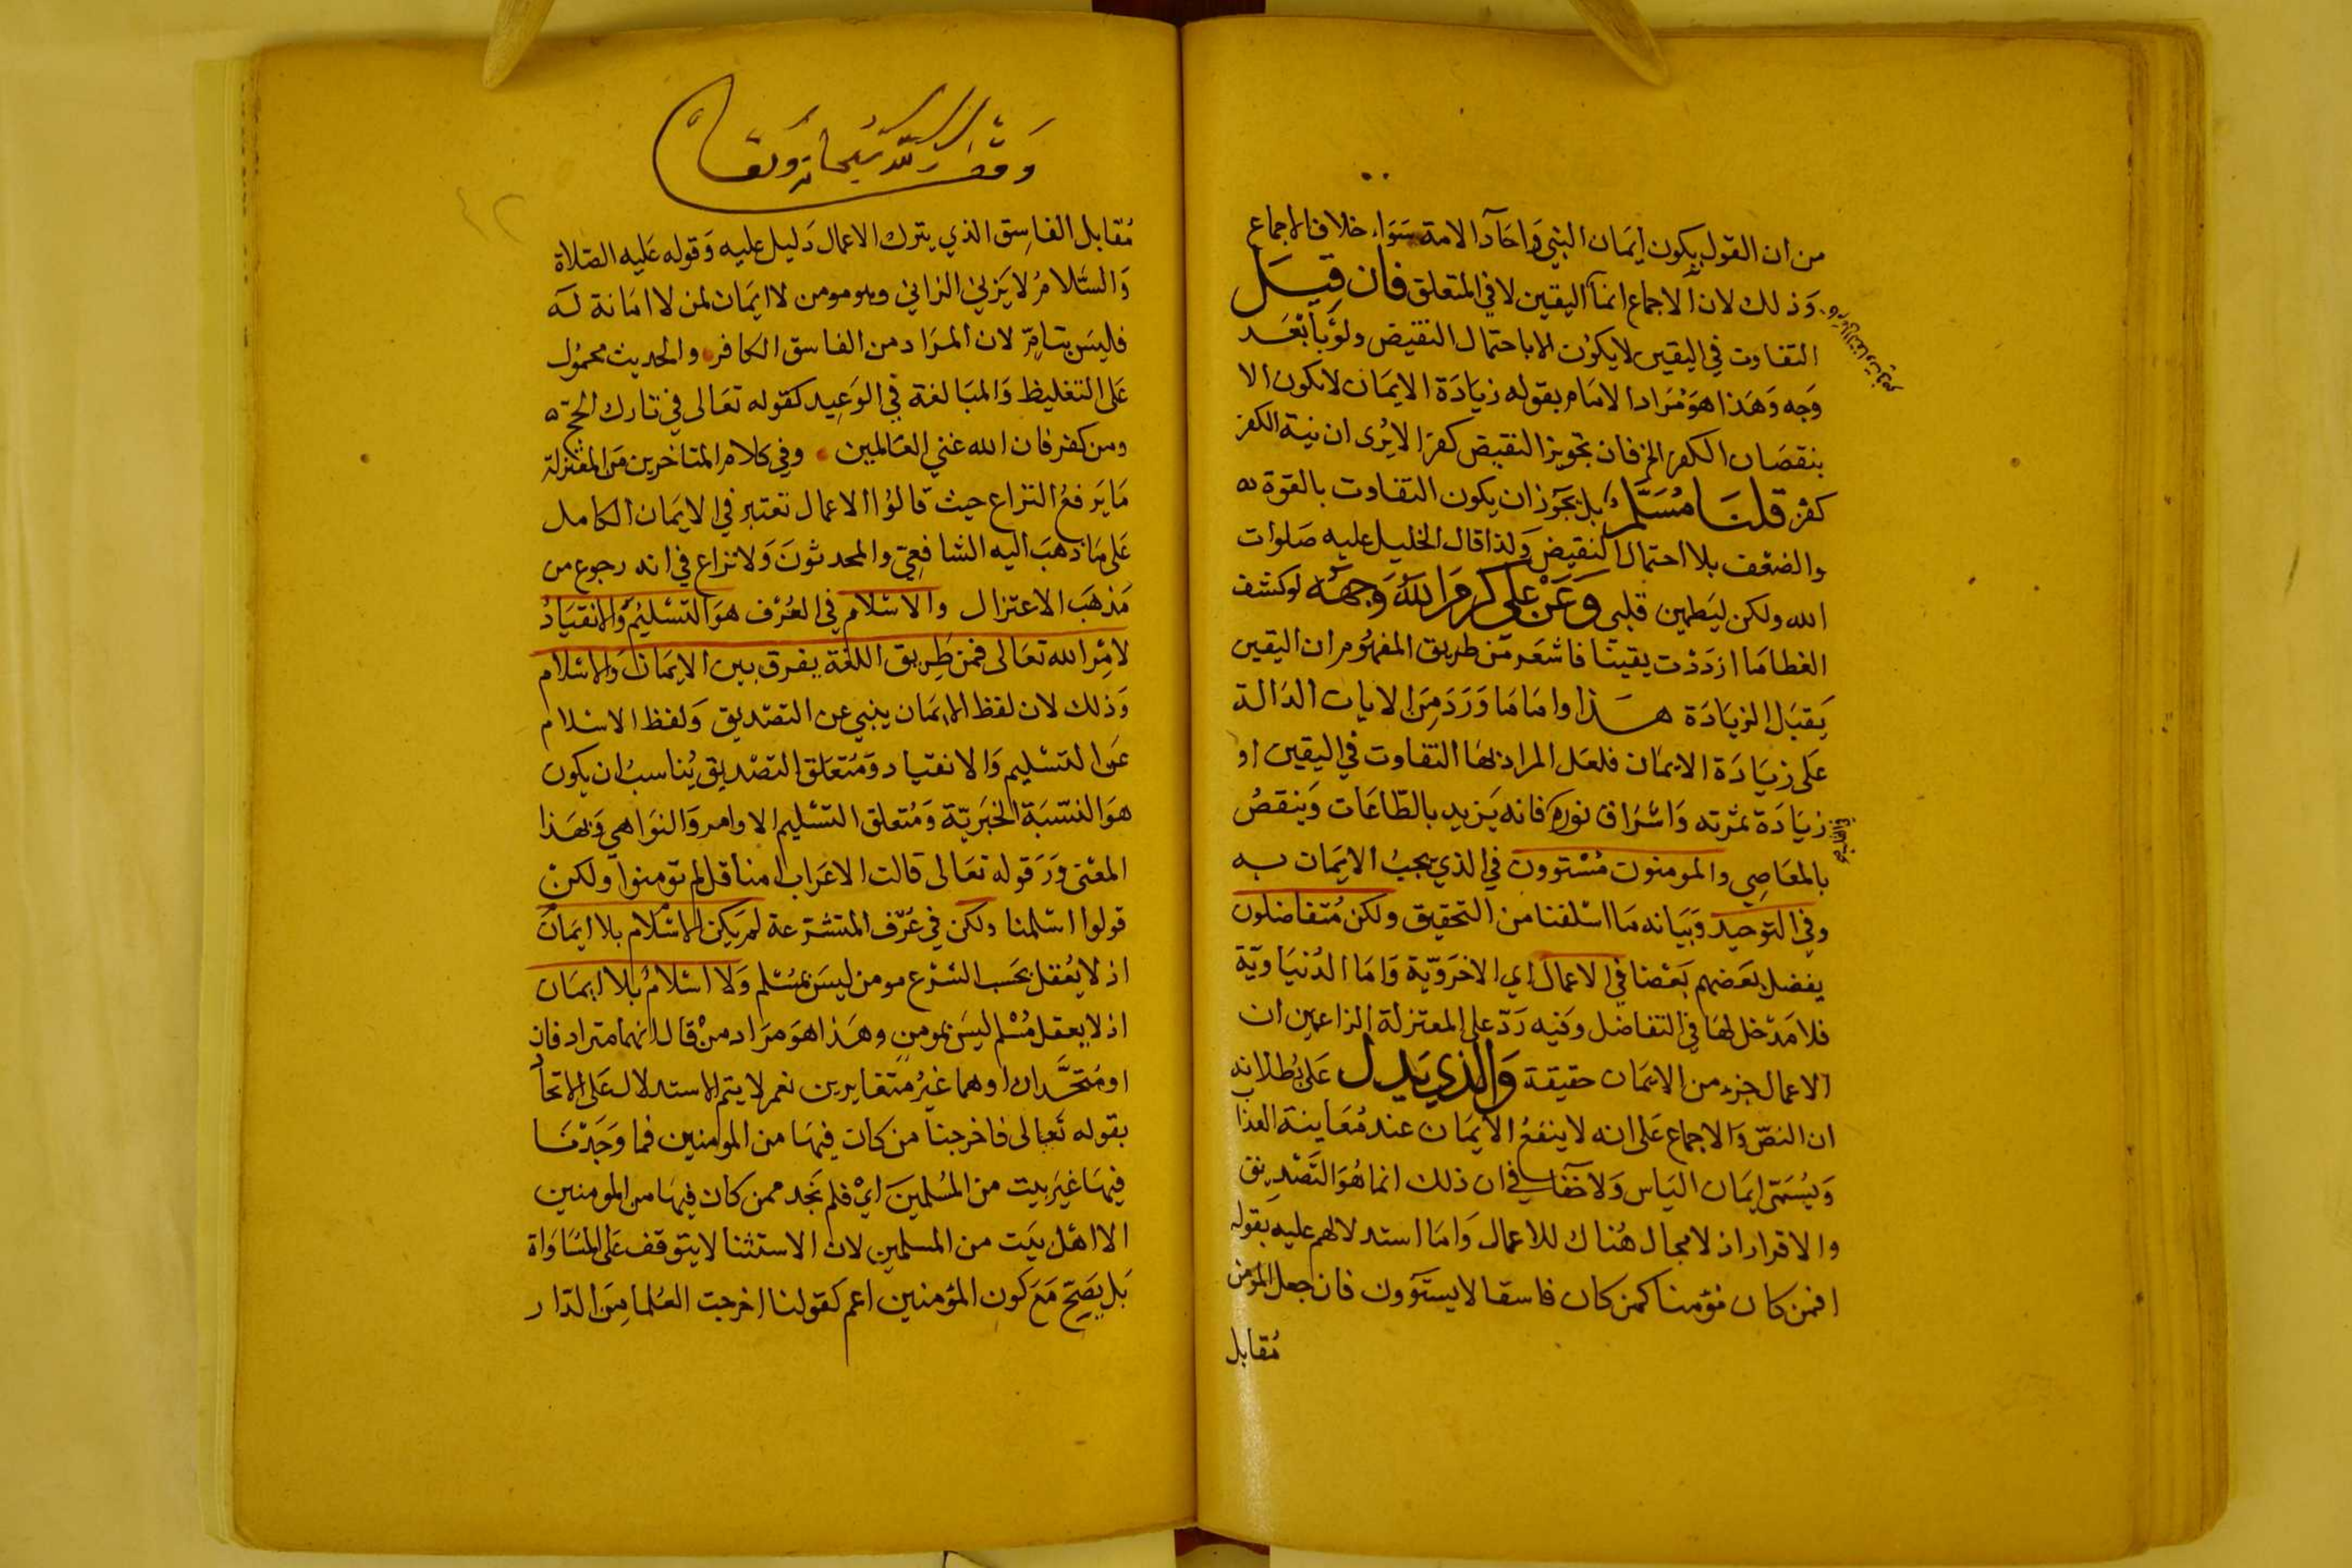 من ان القول بكون ايمان النبي واحاد الامة سواء خلاف الاجماع
وذلك لان الاجماع انما اليقين لا في المتعلق فان قيل
التفاوت في اليقين لا يكون الا باحتمال النقيض ولو بأبعد
وجه وهذا هو مراد الامام بقوله زيادة الايمان لا يكون الا
بنقصان الكفر الخ فان تجويز النقيض كفرا لا يرى ان نية الكفر
كفر قلنا مسلم بل يجوز ان يكون التفاوت بالقوة
والضعف بلا احتمال النقيض ولذا قال الخليل عليه صلوات
الله ولكن ليطمين قلبى وعن على كرم الله وجهه لو كشف
الغطا ما ازددت يقينا فاشعر من طريق المفهوم ان اليقين
يقبل الزيادة هذا واما ما ورد من الايات الدالة
على زيادة الايمان فلعل المراد بها التفاوت في اليقين او
زيادة ثمرته واشراق نوره فانه يزيد بالطاعات وينقص
بالمعاصي والمومنون مستوون في الذي يجب الايمان به
وفي التوحيد وبيانه ما اسلفنا من التحقيق ولكن متفاضلون
يفضل بعضهم بعضا في الاعمال اي الاخروية واما الدنياوية
فلا مدخل لها في التفاضل وفيه رد على المعتزلة الزاعمين ان
الاعمال جزء من الايمان حقيقة والذي يدل على بطلانه
ان النص والاجماع على انه لا ينفع الايمان عند معاينة العذا
ويسمى ايمان الياس ولا خفا في ان ذلك انما هو التصديق
والاقرار اذ لا مجال هناك للاعمال واما استدلالهم عليه بقوله
افمن كان مؤمنا كمن كان فاسقا لا يستوون فان جعل المومن
مقابل
وقف لله سبحانه وتعالى
٤٢
مقابل الفاسق الذي يترك الاعمال دليل عليه وقوله عليه الصلاة
والسلام لا يزني الزاني وهو مومن لا ايمان لمن لا امانة له
فليس بتام لان المراد من الفاسق الكافر والحديث محمول
على التغليظ والمبالغة في الوعيد كقوله تعالى في تارك الحج
ومن كفر فان الله غني العالمين وفي كلام المتاخرين من المعتزلة
ما يرفع النزاع حيث قالوا الاعمال تعتبر في الايمان الكامل
على ما ذهب اليه الشافعي والمحدثون ولا نزاع في انه رجوع من
مذهب الاعتزال والاسلام في العرف هو التسليم والانقياد
لامر الله تعالى فمن طريق اللغة يفرق بين الايمان والاسلام
وذلك لان لفظ الايمان ينبي عن التصديق ولفظ الاسلام
عن التسليم والانقياد ومتعلق التصديق يناسب ان يكون
هو النسبة الخبرية ومتعلق التسليم الاوامر والنواهي وبهذا
المعنى ورد قوله تعالى قالت الاعراب امنا قل لم تومنوا ولكن
قولوا اسلمنا ولكن في عرف المتشرعة لم يكن الاسلام بلا ايمان
اذ لا يعقل بحسب الشرع مومن ليس بمسلم ولا اسلام بلا ايمان
اذ لا يعقل مسلم ليس بمومن وهذا هو مراد من قال انهما مترادفان
او متحدان او هما غير متغايرين نعم لا يتم الاستدلال على الاتحا
بقوله تعالى فاخرجنا من كان فيها من المومنين فما وجدنا
فيها غير بيت من المسلمين اي فلم نجد ممن كان فيها من المومنين
الا اهل بيت من المسلمين لان الاستثنا لا يتوقف على المساواة
بل يصح مع كون المؤمنين اعم كقولنا اخرجت العلما من الدار